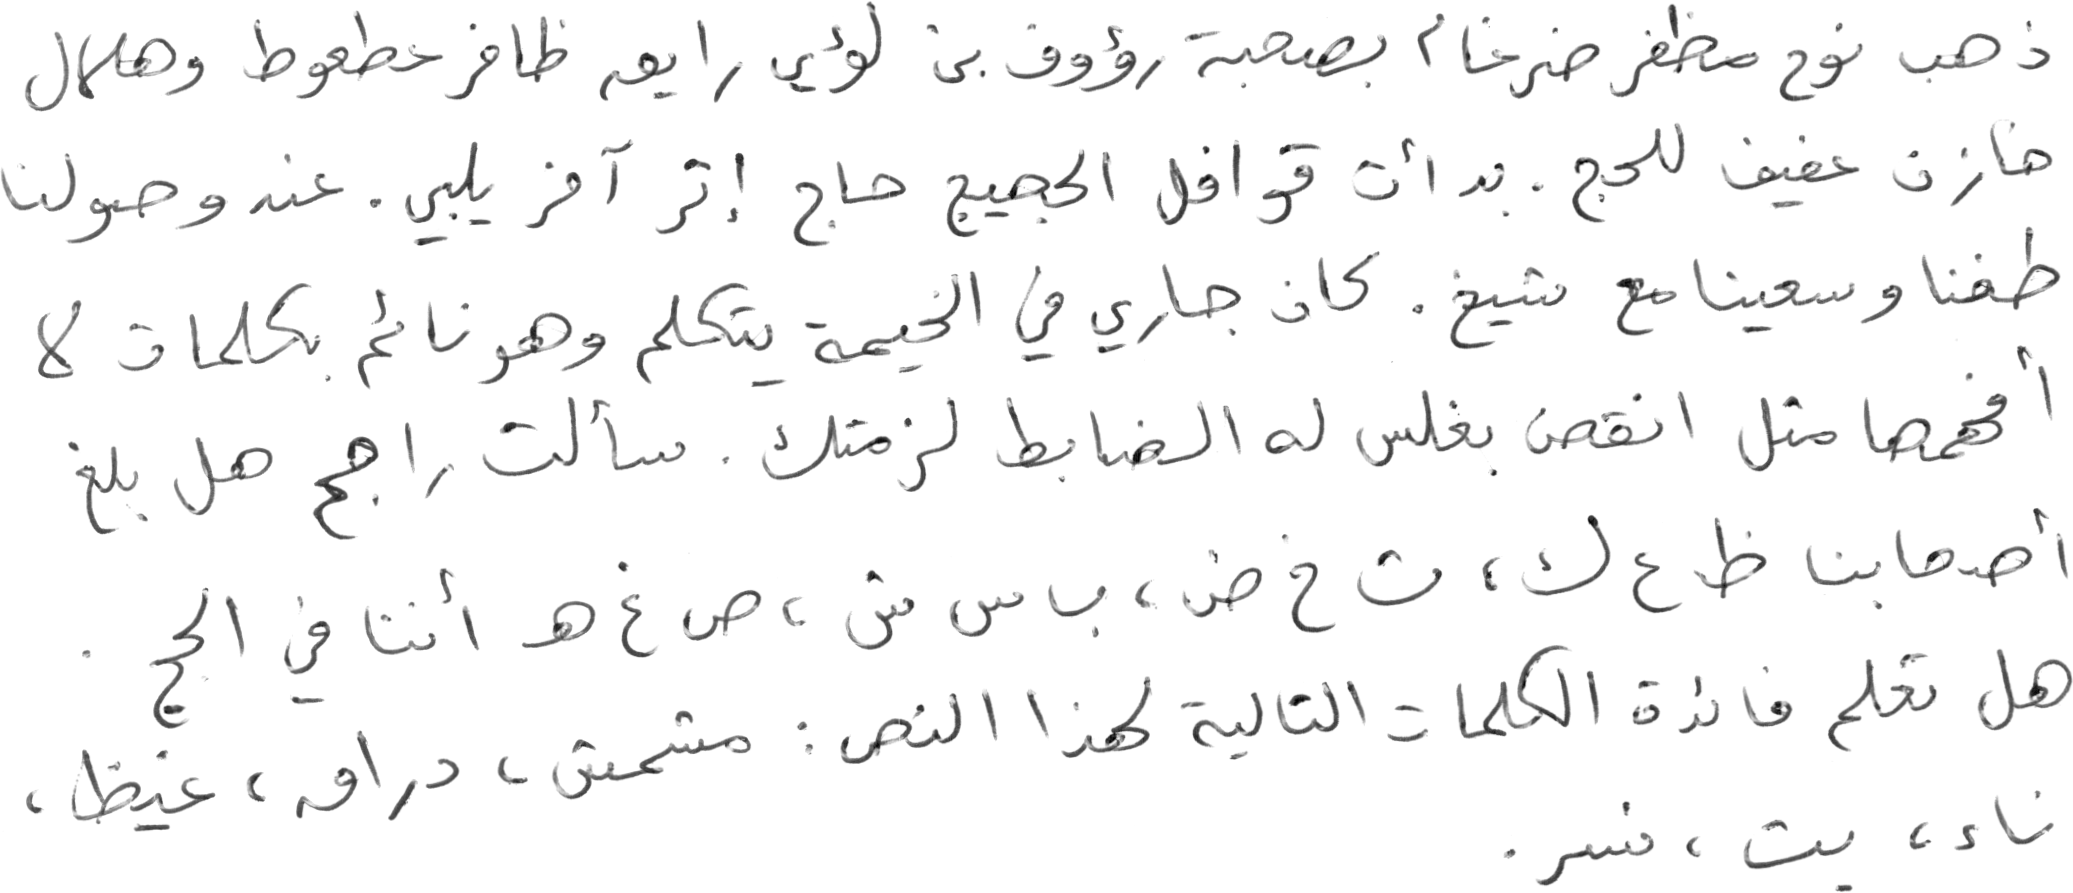 ذهب نوح مظفر ضرغام بصحبة رؤوف بن لؤي رايق ظافر عطعوط وهلال
مازن عفيف للحج . بدأت قوافل الحجيج حاج إثر آخر يلبي . عند وصولنا
طفنا وسعينا مع شيخ . كان جاري في الخيمة يتكلم وهو نائم بكلمات لا
أفهمها مثل انقض بغلس له الضابط لزمتك . سألت راجح هل بلغ
أصحابنا ظ ع ك ، ث خ ض ، ب س ش ، ص غ هـ أننا في الحج .
هل تعلم فائدة الكلمات التالية لهذا النص : مشمش ، دراق ، غيظ ،
ناء ، بيت ، نسر .